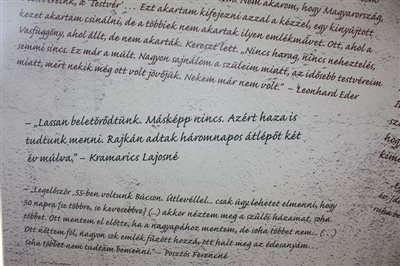 "Testvér"... Ezt akartam kifejezni azzal a kézzel, egy kinyújtott
kezet akartam csinálni, de a többiek nem akartak ilyen emlékművet. Ott, ahol a
Vasfüggöny, ahol állt, de nem akarták. Kereszt lett. „Nincs harag, nincs neheztelés,
semmi sincs. Ez már a múlt. Nagyon sajnálom a szüleim miatt, az idősebb testvéreim
miatt, mert nekik még ott volt jövőjük. Nekem már nem volt." – Leonhard Eder
– „Lassan beletörődtünk. Másképp nincs. Azért haza is
tudtunk menni. Rajkán adtak háromnapos átlépőt két
év múlva." – Kramarics Lajosné
– „Legelőször '55-ben voltunk Búcson. Útlevéllel... csak úgy lehetet elmenni, hogy
30 napra [se többre, se kevesebbre] (...) akkor néztem meg a szülői házamat, soha
többet. Ott mentem el előtte, ha a nagyapához mentem, de soha többet nem... (...)
Ott nőttem föl, nagyon sok emlék fűzött hozzá, ott halt meg az édesanyám
soha többet nem tudtam bemenni." – Posztós Ferencné